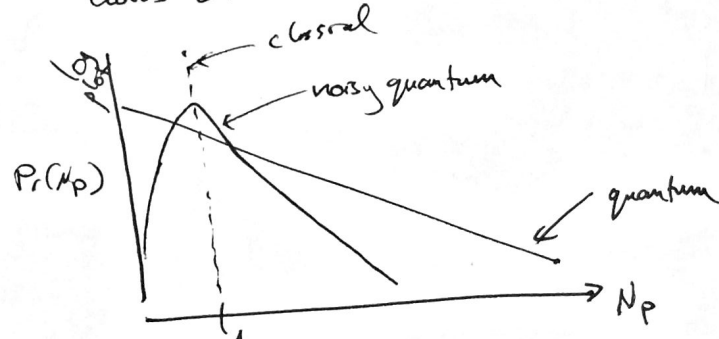 classical
log
noisy quantum
Pr(Np)
quantum
Np
1